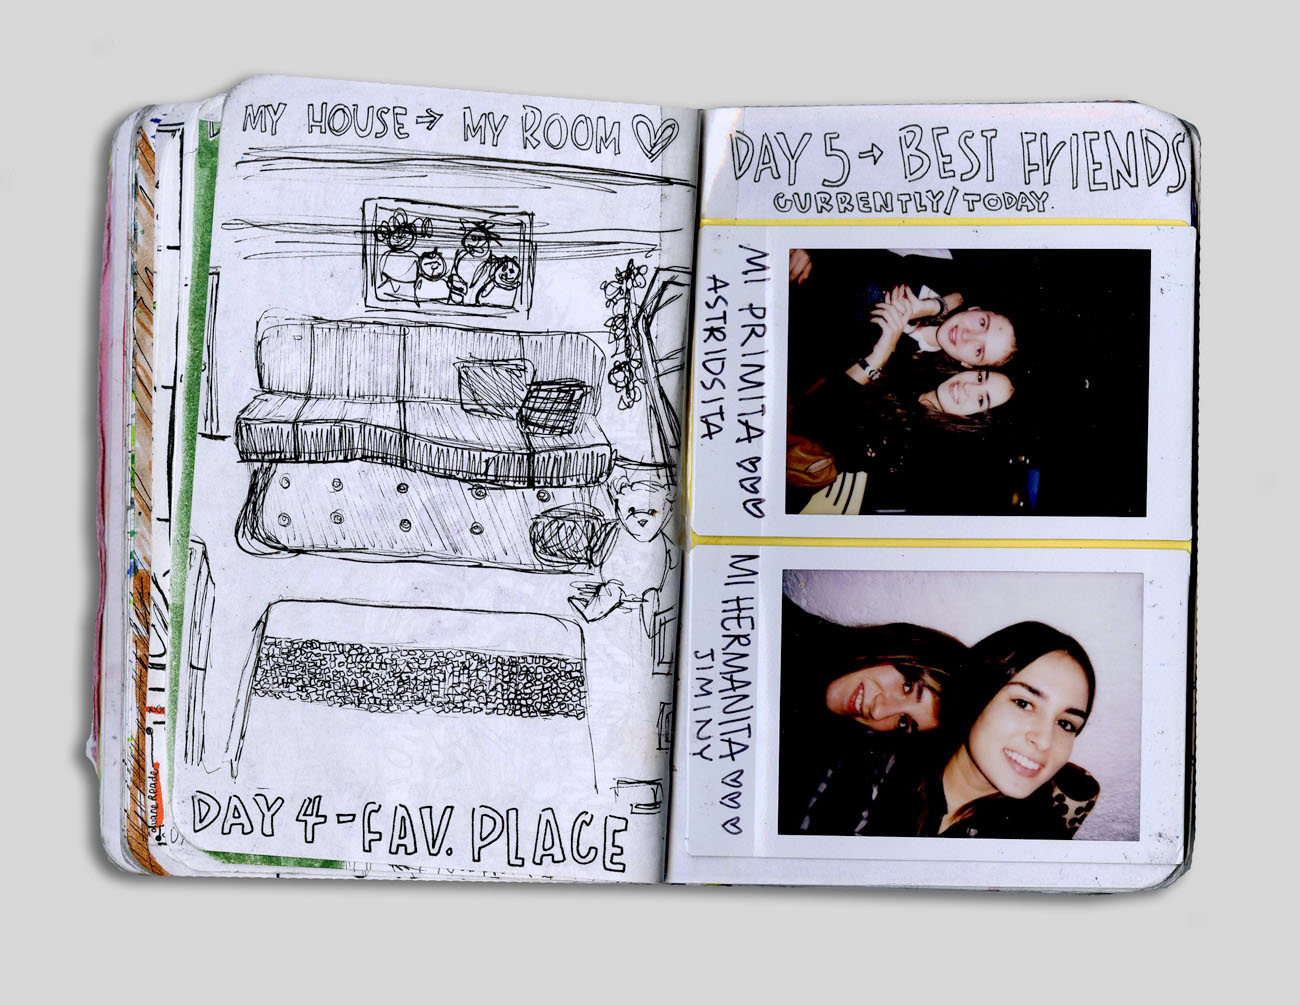 MY HOUSE → MY ROOM ♡
DAY 4 - FAV. PLACE
DAY 5 → BEST FRIENDS
CURRENTLY/TODAY.
MI PRIMITA ♡♡♡
ASTRIDSITA
MI HERMANITA ♡♡♡
JIMINY